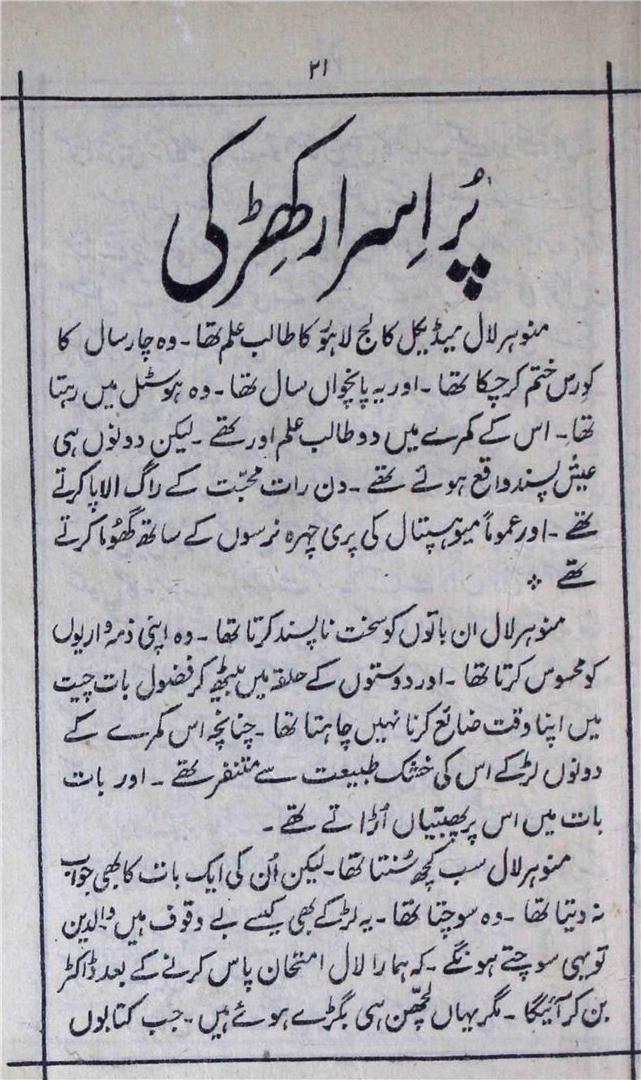 ۲۱
پُر اِسرار کھِڑکی
منوہر لال میڈیکل کالج لاہور کا طالب علم تھا۔ وہ چار سال کا
کورس ختم کر چکا تھا۔ اور یہ پانچواں سال تھا۔ وہ ہوسٹل میں رہتا
تھا۔ اس کے کمرے میں دو طالب علم اور تھے۔ لیکن دونوں ہی
عیش پسند واقع ہوئے تھے۔ دن رات محبّت کے راگ الاپا کرتے
تھے۔ اور عموماً میو ہسپتال کی پری چہرہ نرسوں کے ساتھ گھُوما کرتے
تھے ⁘
منوہر لال ان باتوں کو سخت ناپسند کرتا تھا۔ وہ اپنی ذمہ واریوں
کو محسوس کرتا تھا۔ اور دوستوں کے حلقہ میں بیٹھ کر فضول بات چیت
میں اپنا وقت ضائع کرنا نہیں چاہتا تھا۔ چنانچہ اس کمرے کے
دونوں لڑکے اس کی خشک طبیعت سے متنفر تھے۔ اور بات
بات میں اس پر پھبتیاں اُڑاتے تھے۔
منوہر لال سب کچھ سُنتا تھا۔ لیکن اُن کی ایک بات کا بھی جواب
نہ دیتا تھا۔ وہ سوچتا تھا۔ یہ لڑکے بھی کیسے بے وقوف ہیں والدین
تو یہی سوچتے ہونگے۔ کہ ہمارا لال امتحان پاس کرنے کے بعد ڈاکٹر
بن کر آئیگا۔ مگر یہاں لچھّن ہی بگڑے ہوئے ہیں۔ جب کتابوں